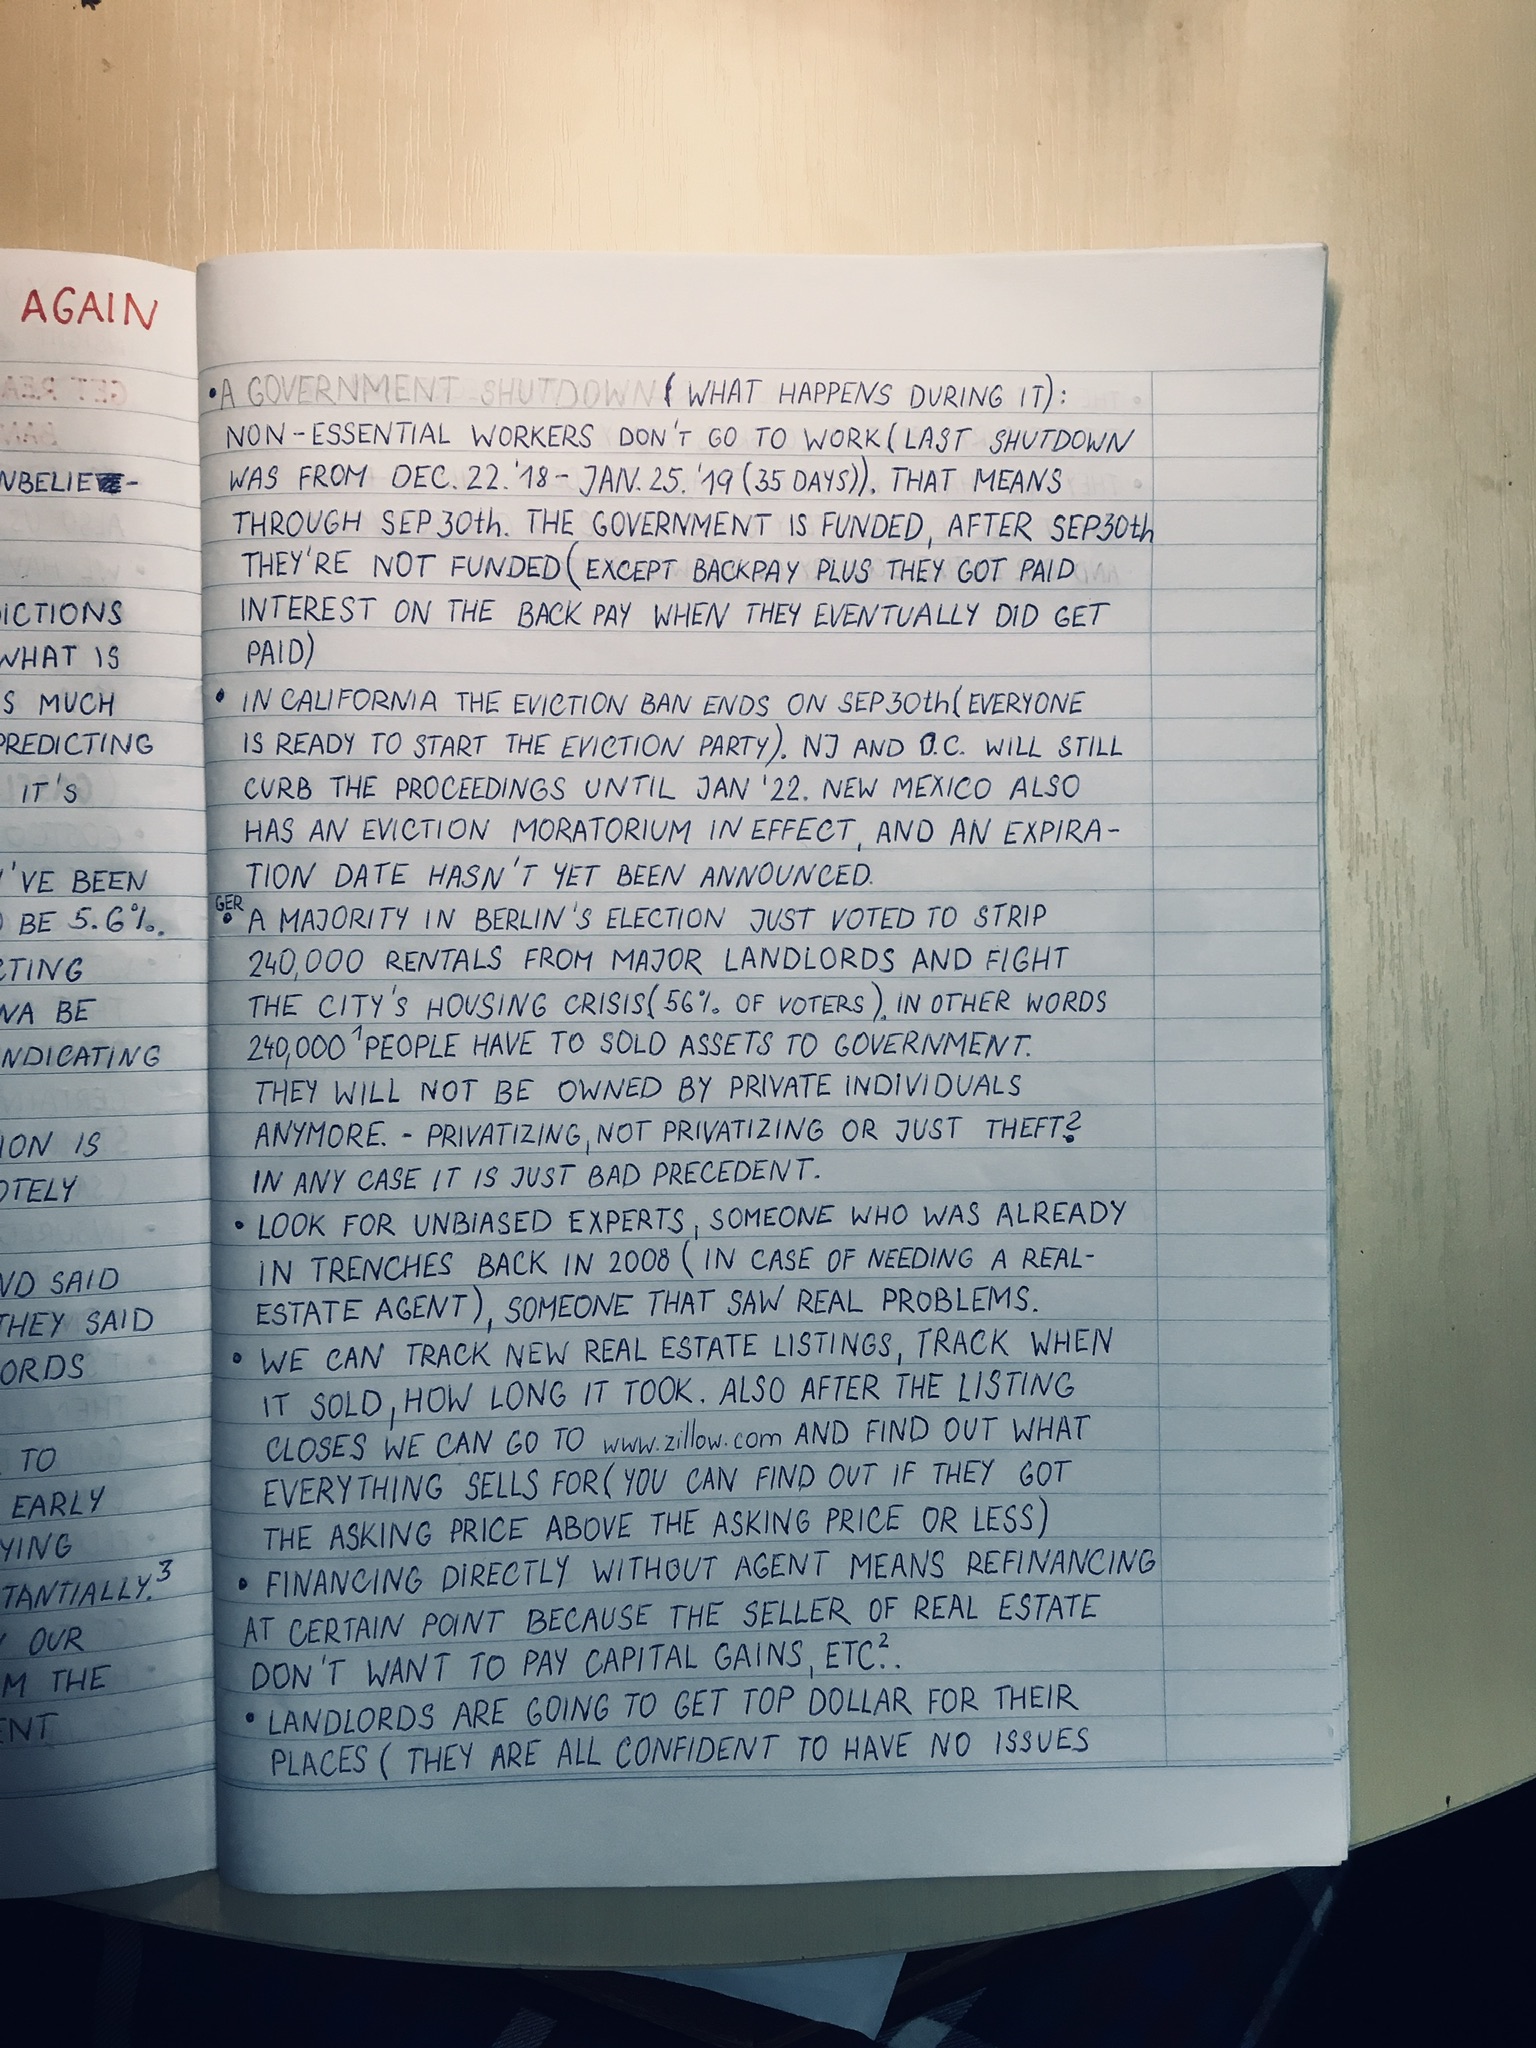 AGAIN
NBELIE
ICTIONS
WHAT IS
S MUCH
PREDICTING
IT'S
'VE BEEN
BE 5.6%.
CTING
NA BE
NDICATING
ION IS
OTELY
ND SAID
THEY SAID
ORDS
TO
EARLY
YING
TANTIALLY.³
OUR
M THE
ENT
• A GOVERNMENT SHUTDOWN (WHAT HAPPENS DURING IT):
NON-ESSENTIAL WORKERS DON'T GO TO WORK (LAST SHUTDOWN
WAS FROM DEC. 22. '18 - JAN. 25. '19 (35 DAYS)). THAT MEANS
THROUGH SEP 30th. THE GOVERNMENT IS FUNDED, AFTER SEP 30th
THEY'RE NOT FUNDED (EXCEPT BACKPAY PLUS THEY GOT PAID
INTEREST ON THE BACK PAY WHEN THEY EVENTUALLY DID GET
PAID)
• IN CALIFORNIA THE EVICTION BAN ENDS ON SEP 30th (EVERYONE
IS READY TO START THE EVICTION PARTY). NJ AND D.C. WILL STILL
CURB THE PROCEEDINGS UNTIL JAN '22. NEW MEXICO ALSO
HAS AN EVICTION MORATORIUM IN EFFECT, AND AN EXPIRA-
TION DATE HASN'T YET BEEN ANNOUNCED.
GER
• A MAJORITY IN BERLIN'S ELECTION JUST VOTED TO STRIP
240,000 RENTALS FROM MAJOR LANDLORDS AND FIGHT
THE CITY'S HOUSING CRISIS (56% OF VOTERS). IN OTHER WORDS
240,000¹ PEOPLE HAVE TO SOLD ASSETS TO GOVERNMENT.
THEY WILL NOT BE OWNED BY PRIVATE INDIVIDUALS
ANYMORE. - PRIVATIZING, NOT PRIVATIZING OR JUST THEFT?
IN ANY CASE IT IS JUST BAD PRECEDENT.
• LOOK FOR UNBIASED EXPERTS, SOMEONE WHO WAS ALREADY
IN TRENCHES BACK IN 2008 (IN CASE OF NEEDING A REAL-
ESTATE AGENT), SOMEONE THAT SAW REAL PROBLEMS.
• WE CAN TRACK NEW REAL ESTATE LISTINGS, TRACK WHEN
IT SOLD, HOW LONG IT TOOK. ALSO AFTER THE LISTING
CLOSES WE CAN GO TO www.zillow.com AND FIND OUT WHAT
EVERYTHING SELLS FOR (YOU CAN FIND OUT IF THEY GOT
THE ASKING PRICE ABOVE THE ASKING PRICE OR LESS)
• FINANCING DIRECTLY WITHOUT AGENT MEANS REFINANCING
AT CERTAIN POINT BECAUSE THE SELLER OF REAL ESTATE
DON'T WANT TO PAY CAPITAL GAINS, ETC².
• LANDLORDS ARE GOING TO GET TOP DOLLAR FOR THEIR
PLACES (THEY ARE ALL CONFIDENT TO HAVE NO ISSUES